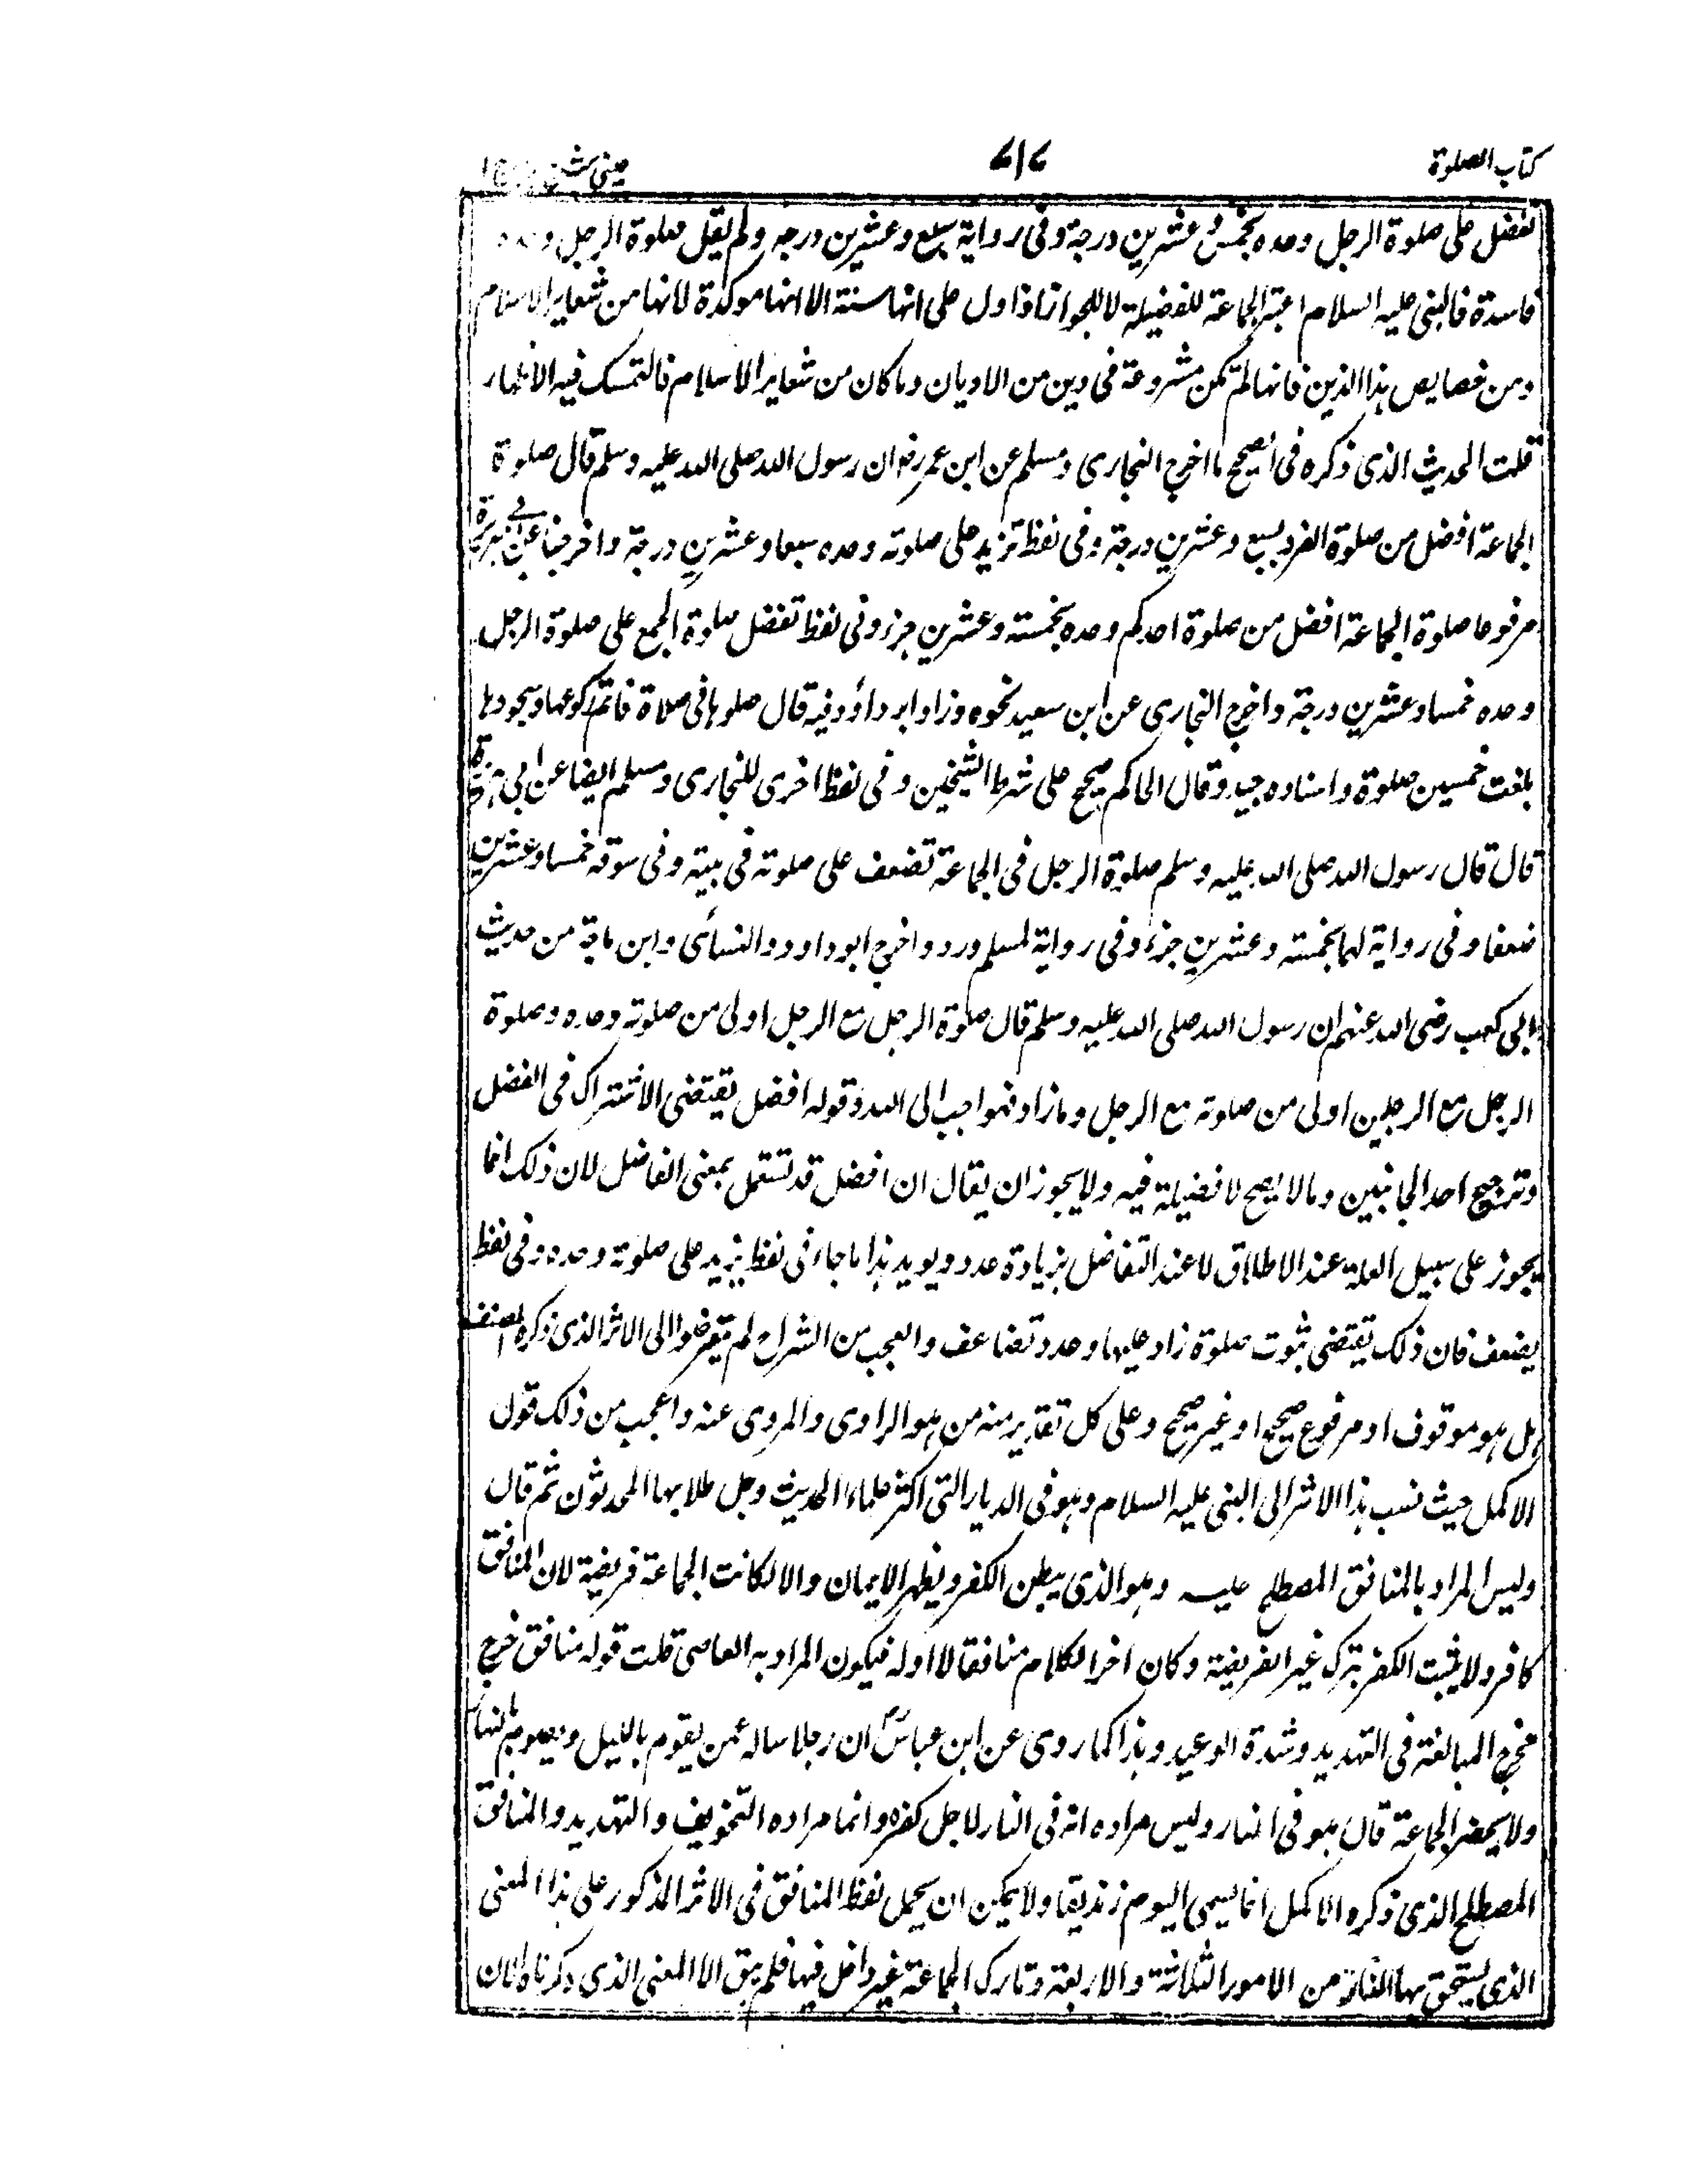 كتاب الصلوة
٧١٧
عينى شرح
تفضل على صلوة الرجل وحده بخمس وعشرين درجة وفى رواية سبع وعشرين درجه ولم يقل صلوة الرجل وحده
فاسدة فالنبى عليه السلام اعتبر الجماعة للفضيلة لا للجواز اذا دل على انها سنة الا انها موكدة لانها من شعاير الاسلام
ومن خصايص هذا الدين فانها لم تكن مشروعة فى دين من الاديان وما كان من شعاير الاسلام فالتمسك فيه الاظهار
قلت الحديث الذى ذكره فى الصحيح ما اخرج البخارى ومسلم عن ابن عمر رض ان رسول الله صلى الله عليه وسلم قال صلوة
الجماعة افضل من صلوة الفرد بسبع وعشرين درجة وفى لفظ تزيد على صلوته وحده سبعا وعشرين درجة واخرجا عن ابى هريرة
مرفوعا صلوة الجماعة افضل من صلوة احدكم وحده بخمسة وعشرين جزء وفى لفظ تفضل صلوة الجمع على صلوة الرجل
وحده خمسا وعشرين درجة واخرج البخارى عن ابن سعيد نحوه وزاد ابو داؤد فيه قال صلوها فى صلاة فاتم ركوعها وسجودها
بلغت خمسين صلوة واسناده جيد وقال الحاكم صحيح على شرط الشيخين وفى لفظ اخرى للبخارى ومسلم ايضا عن ابى هريرة
قال قال رسول الله صلى الله عليه وسلم صلوة الرجل فى الجماعة تضعف على صلوته فى بيته وفى سوقه خمسا وعشرين
ضعفا وفى رواية لهما بخمسة وعشرين جزء وفى رواية لمسلم ورد واخرج ابو داود والنسأى وابن ماجة من حديث
ابى كعب رضى الله عنهم ان رسول الله صلى الله عليه وسلم قال صلوة الرجل مع الرجل اولى من صلوته وحده وصلوة
الرجل مع الرجلين اولى من صلوته مع الرجل وما زاد فهو احب الى الله وقوله افضل يقتضى الاشتراك فى الفضل
وترجيح احد الجانبين وما لا يصح لا فضيلة فيه ولا يجوز ان يقال ان افضل قد تستعمل بمعنى الفاضل لان ذلك انما
يجوز على سبيل العلة عند الاطلاق لا عند التفاضل بزيادة عدد ويويد هذا ما جاء فى لفظ يزيد على صلوته وحده وفى لفظ
يضعف فان ذلك يقتضى ثبوت صلوة زاد عليها وعدد تضاعف والعجب من الشراح لم يتعرضوا الى الاثر الذى ذكره المصنف
هل هو موقوف او مرفوع صحيح او غير صحيح وعلى كل تقدير منه من هو الراوى والمروى عنه واعجب من ذلك قول
الاكمل حيث نسب هذا الاثر الى النبى عليه السلام وهو فى الديار التى اكثر علماء الحديث وجل طلابها المحدثون ثم قال
وليس المراد بالمنافق المصطلح عليه وهو الذى يبطن الكفر ويظهر الايمان والا لكانت الجماعة فريضة لان المنافق
كافر ولا يثبت الكفر بترك غير الفريضة وكان اخر الكلام منافقا لا اوله فيكون المراد به العاصى قلت قوله منافق خرج
مخرج المبالغة فى التهديد وشدة الوعيد وهذا كما روى عن ابن عباس ان رجلا ساله عمن يقوم بالليل ويصوم بالنهار
ولا يحضر الجماعة قال هو فى النار وليس مراده انه فى النار لاجل كفره وانما مراده التخويف والتهديد والمنافق
المصطلح الذى ذكره الاكمل انما يسمى اليوم زنديقا ولا يمكن ان يحمل لفظ المنافق فى الاثر المذكور على هذا المعنى
الذى يستحق بها من الامور الثلاثة والاربعة وتارك الجماعة غير داخل فيها فلم يبق الا المعنى الذى ذكرناه لان